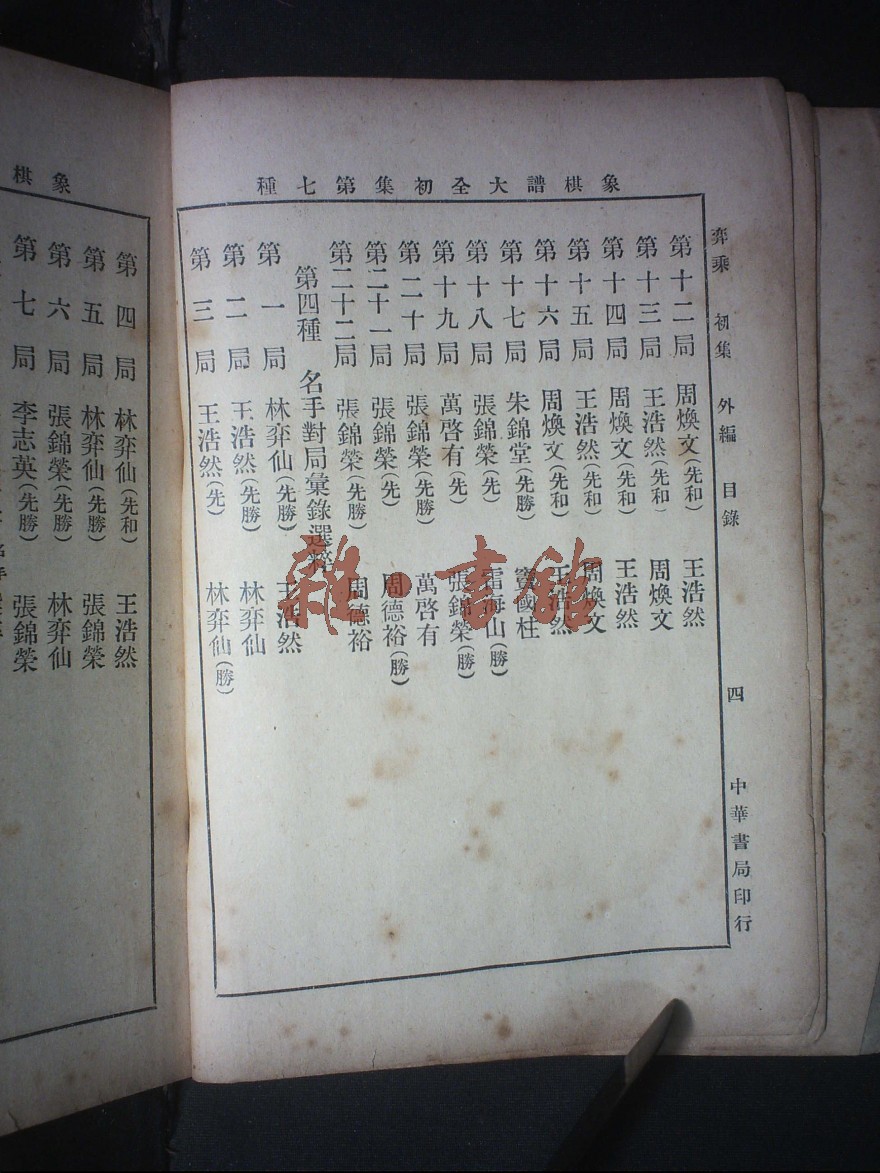 象棋譜大全初集第七種
弈乘 初集 外編 目錄 四 中華書局印行
第十二局 周煥文(先和) 王浩然
第十三局 王浩然(先和) 周煥文
第十四局 周煥文(先和) 王浩然
第十五局 王浩然(先和) 周煥文
第十六局 周煥文(先和) 王浩然
第十七局 朱錦堂(先勝) 竇國柱
第十八局 張錦榮(先) 雷海山(勝)
第十九局 萬啓有(先) 張錦榮(勝)
第二十局 張錦榮(先勝) 萬啓有
第二十一局 張錦榮(先) 周德裕(勝)
第二十二局 張錦榮(先勝) 周德裕
第四種 名手對局彙錄選粹
第一局 林弈仙(先勝) 王浩然
第二局 王浩然(先勝) 林弈仙
第三局 王浩然(先) 林弈仙(勝)
象棋
第四局 林弈仙(先和) 王浩然
第五局 林弈仙(先勝) 張錦榮
第六局 張錦榮(先勝) 林弈仙
第七局 李志英(先勝) 張錦榮
雜·書館